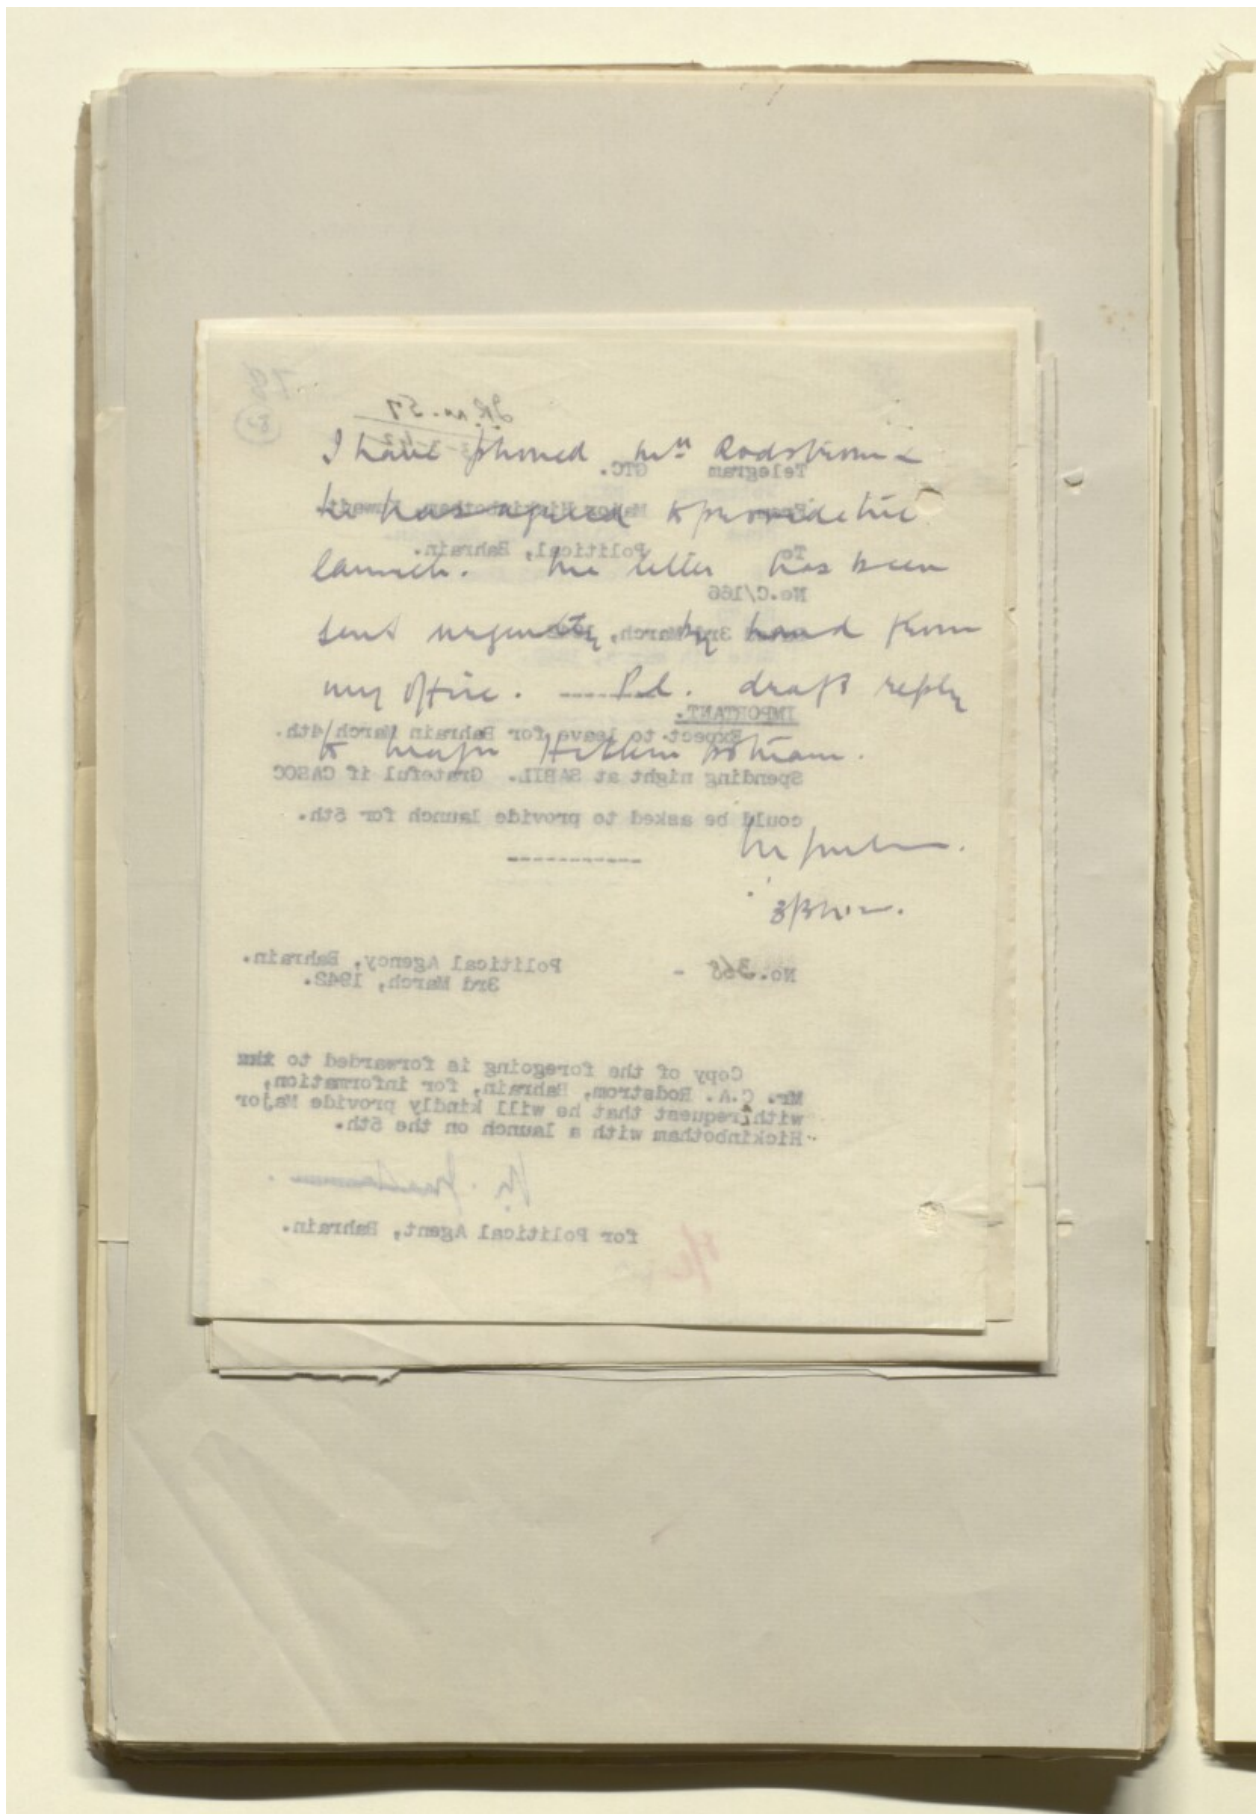 I have phoned Mr Rodstrom &
he has agreed to provide the
launch. The letter has been
sent urgently by hand from
my office. Pl. draft reply
to Major Hickinbotham.
78
Telegram GTC.
From Major Hickinbotham, Kuwait.
To Political, Bahrain.
No.C/166
3rd March,
IMPORTANT.
Expect to leave for Bahrain March 4th.
Spending night at SABIL. Grateful if CASOC
could be asked to provide launch for 5th.
-----------
No. 368 -
Political Agency, Bahrain.
3rd March, 1942.
Copy of the foregoing is forwarded to
Mr. C.A. Rodstrom, Bahrain, for information,
with request that he will kindly provide Major
Hickinbotham with a launch on the 5th.
for Political Agent, Bahrain.